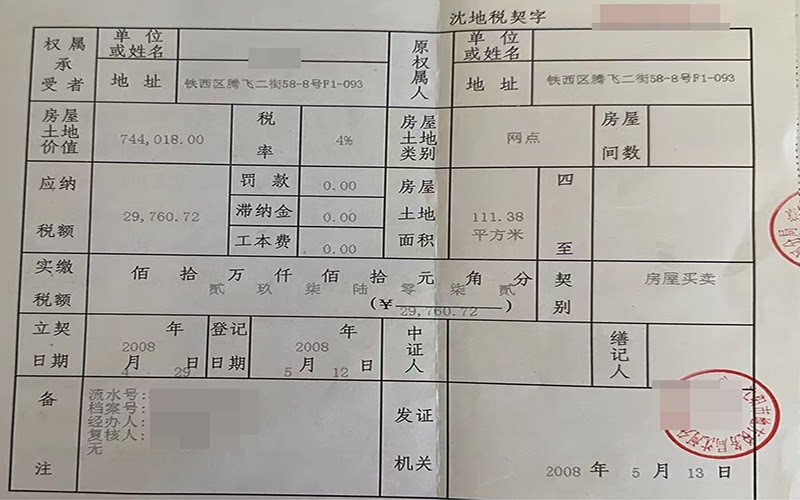 沈地税契字
权属承受者 单位或姓名 原权属人 单位或姓名
地址 铁西区腾飞二街58-8号F1-093 地址 铁西区腾飞二街58-8号F1-093
房屋土地价值 744,018.00 税率 4% 房屋土地类别 网点 房屋间数
应纳税额 29,760.72 罚款 0.00 房屋土地面积 111.38平方米 四至
滞纳金 0.00
工本费 0.00
实缴税额 佰拾万仟佰拾元角分 契别 房屋买卖
贰玖柒陆零柒贰
(¥29,760.72)
立契日期 2008年4月29日 登记日期 2008年5月12日 中证人 缮记人
备注 流水号: 发证机关
档案号:
经办人:
复核人:
无
2008年5月13日